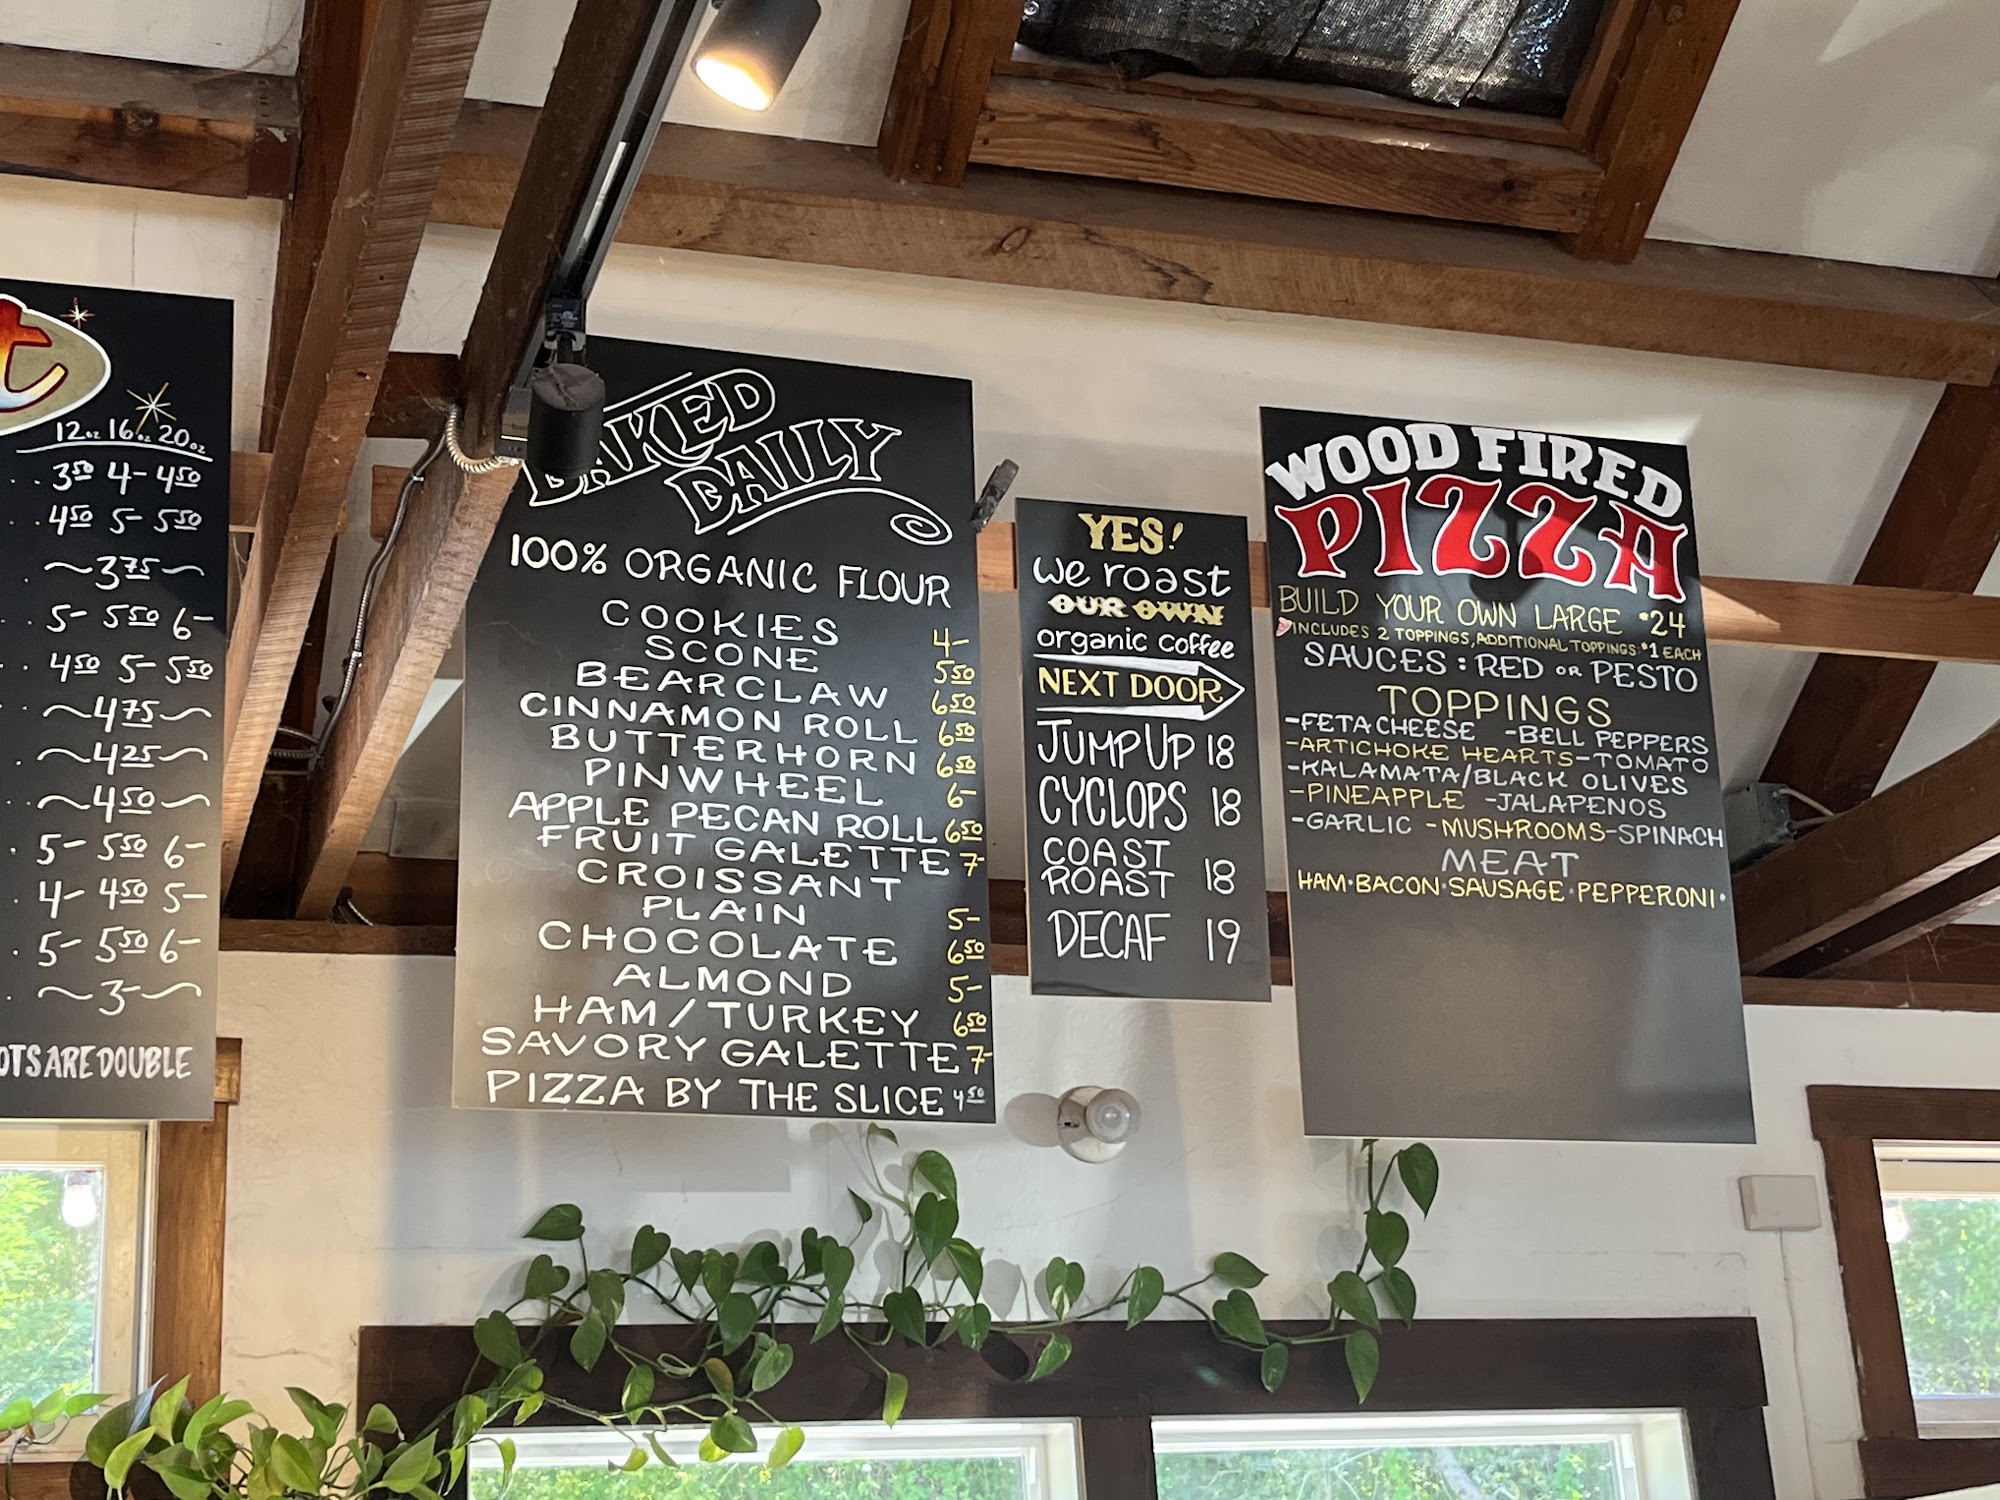 t
12oz 16oz 20oz
3.50 4- 4.50
4.50 5- 5.50
~3.75~
5- 5.50 6-
4.50 5- 5.50
~4.75~
~4.25~
~4.50~
5- 5.50 6-
4- 4.50 5-
5- 5.50 6-
~3-~
OTS ARE DOUBLE
BAKED
DAILY
100% ORGANIC FLOUR
COOKIES 4-
SCONE 5.50
BEARCLAW 6.50
CINNAMON ROLL 6.50
BUTTERHORN 6.50
PINWHEEL 6-
APPLE PECAN ROLL 6.50
FRUIT GALETTE 7-
CROISSANT
PLAIN 5-
CHOCOLATE 6.50
ALMOND 5-
HAM/TURKEY 6.50
SAVORY GALETTE 7-
PIZZA BY THE SLICE 4.50
YES!
we roast
OUR OWN
organic coffee
NEXT DOOR
JUMP UP 18
CYCLOPS 18
COAST
ROAST 18
DECAF 19
WOOD FIRED
PIZZA
BUILD YOUR OWN LARGE $24
INCLUDES 2 TOPPINGS, ADDITIONAL TOPPINGS $1 EACH
SAUCES: RED OR PESTO
TOPPINGS
-FETA CHEESE -BELL PEPPERS
-ARTICHOKE HEARTS-TOMATO
-KALAMATA/BLACK OLIVES
-PINEAPPLE -JALAPENOS
-GARLIC -MUSHROOMS-SPINACH
MEAT
HAM·BACON·SAUSAGE·PEPPERONI·